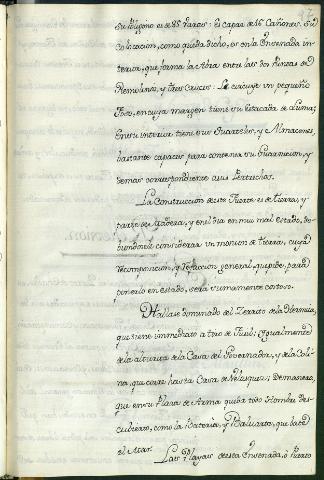 su Poligono es de 85 Varas: es capaz de 16 Cañones. Su
colocacion, como queda dicho, es en la Ensenada in-
terior, que forma la Abra entre las dos Puntas de
Remolinos, y tres Cruces. Le circuye un pequeño
Foso, en cuya margen tiene su Estacada de Luma;
En su interior tiene sus Quarteles, y Almacenes,
bastante capaces para contener su Guarnicion, y
demas correspondiente a sus Pertrechos.
La Construccion de este Fuerte es de tierra, y
parte de Madera, y en el dia en mui mal estado, de-
biendose considerar un monton de tierra, cuya
recomposicion, y refaccion general, que pide, para
ponerlo en estado, será sumamente costoso.
Hallase dominado del Zerrito de la Hermita,
que tiene inmediato a tiro de Fusil; Igualmente
de la altura de la Casa del Governador, y de la Coli-
na, que corre hasta Casa de Velasquez; De manera,
que en su Plaza de Arma queda todo Hombre des-
cubierto, como la Bateria, y Baluarte, que hace
el Mar.
Las Playas de esta Ensenada, o Puerto